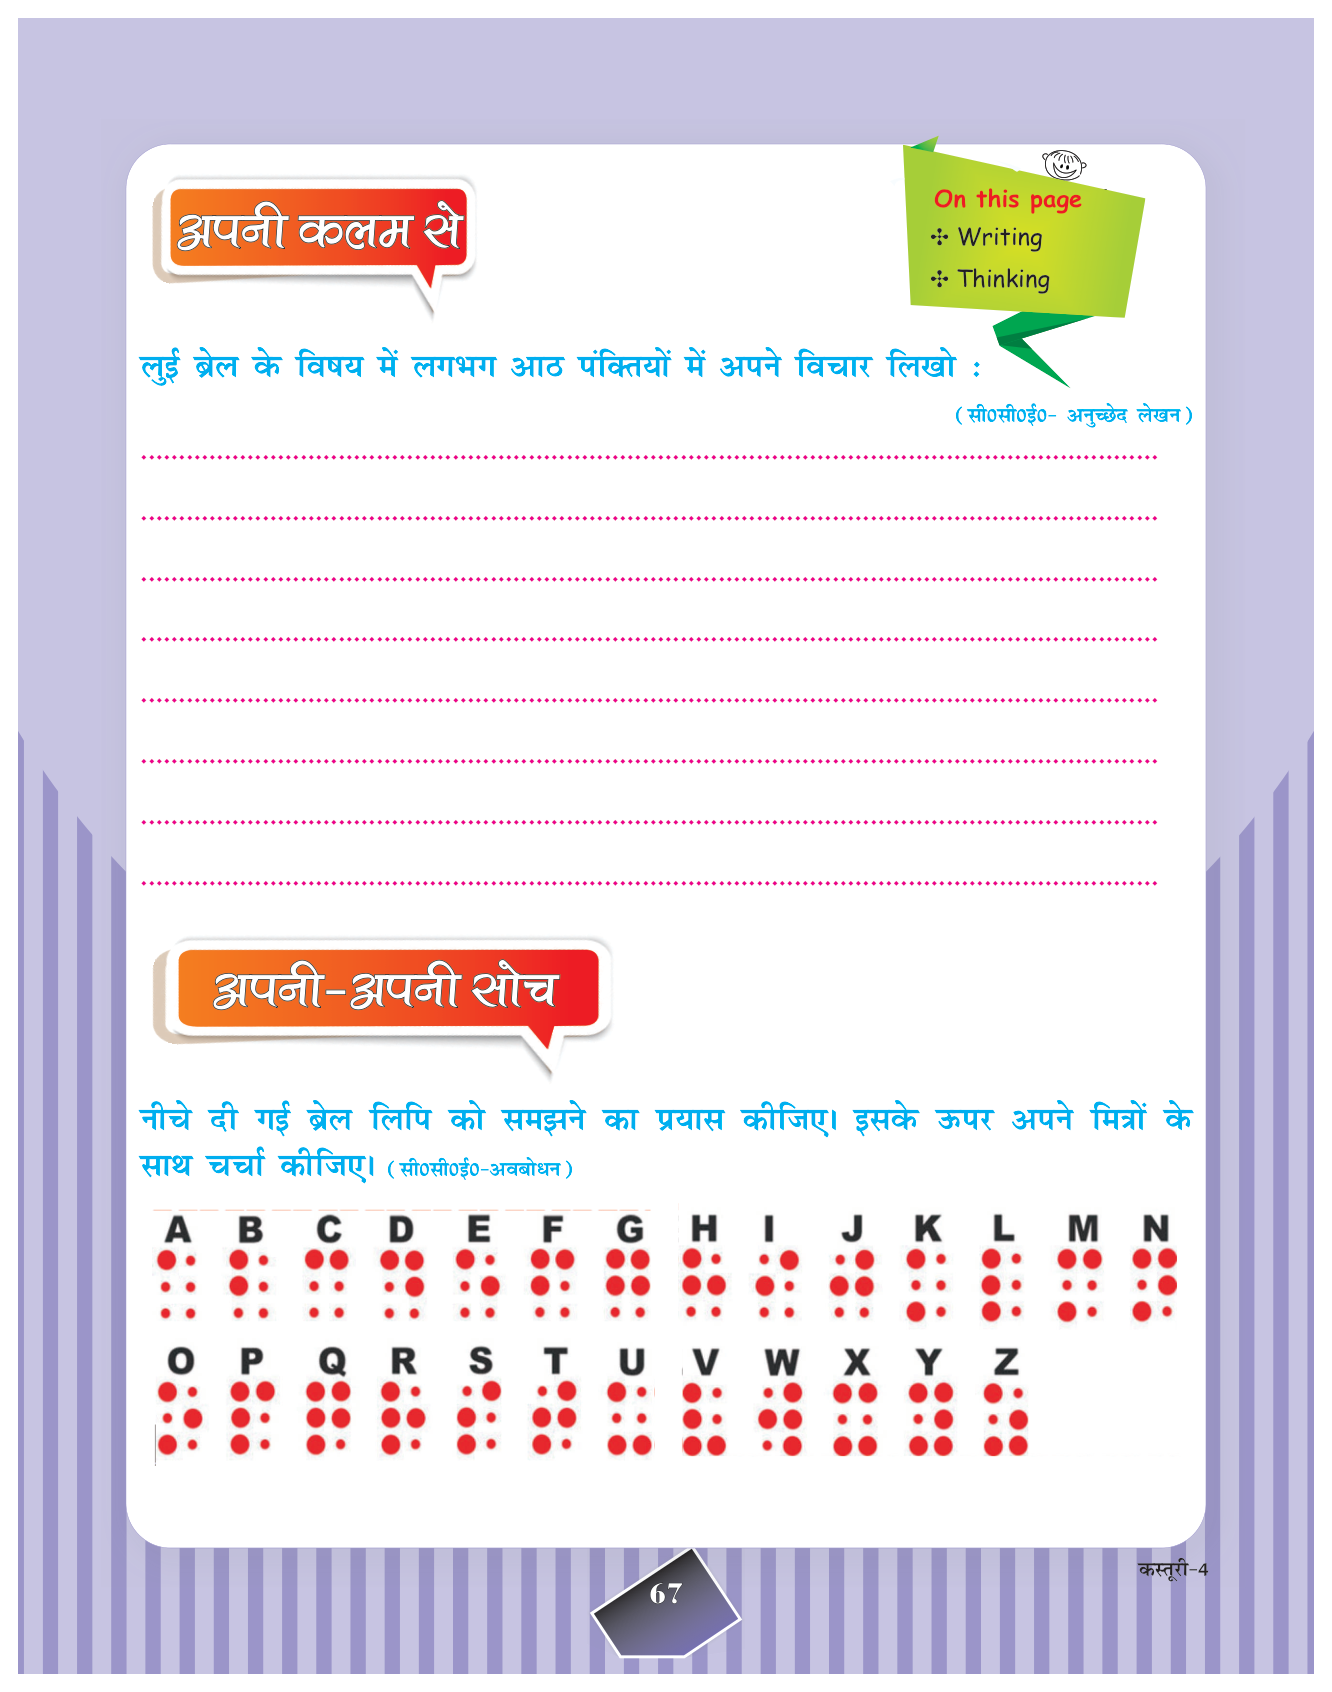 अपनी कलम से
On this page
✣ Writing
✣ Thinking
लुई ब्रेल के विषय में लगभग आठ पंक्तियों में अपने विचार लिखो :
(सी0सी0ई0- अनुच्छेद लेखन)
अपनी-अपनी सोच
नीचे दी गई ब्रेल लिपि को समझने का प्रयास कीजिए। इसके ऊपर अपने मित्रों के
साथ चर्चा कीजिए। (सी0सी0ई0-अवबोधन)
A B C D E F G H I J K L M N
O P Q R S T U V W X Y Z
कस्तूरी-4
67